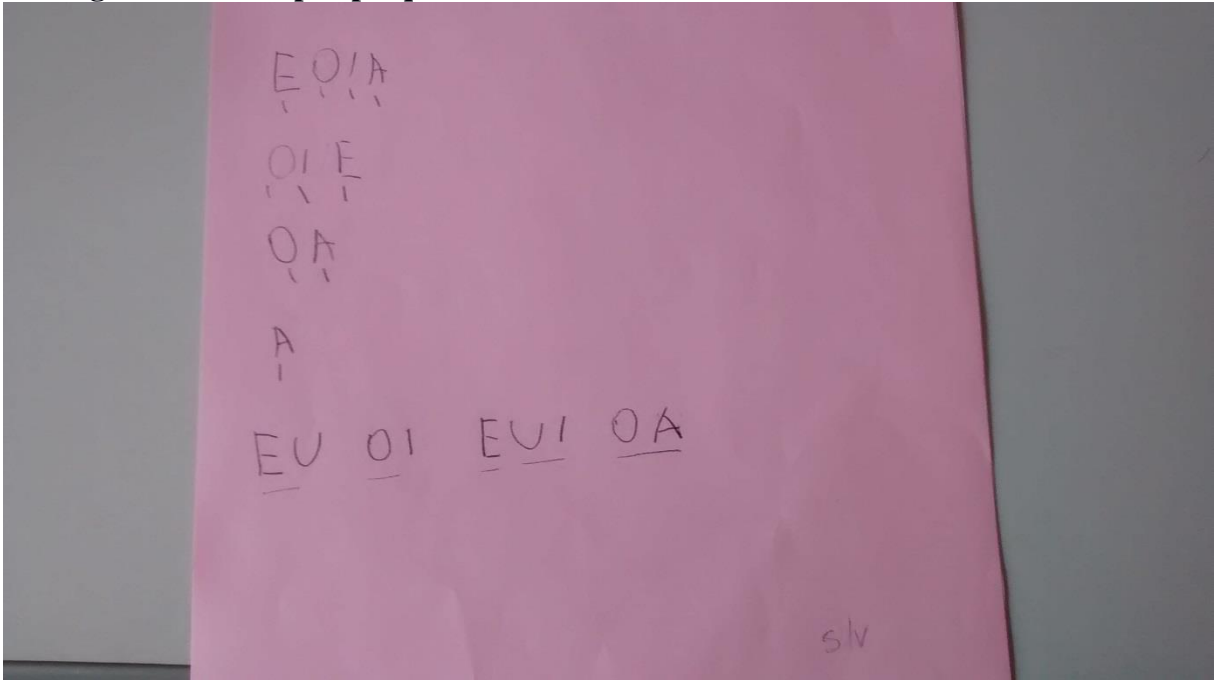 E O I A
O I E
O A
A
EU OI EUI OA
s/v